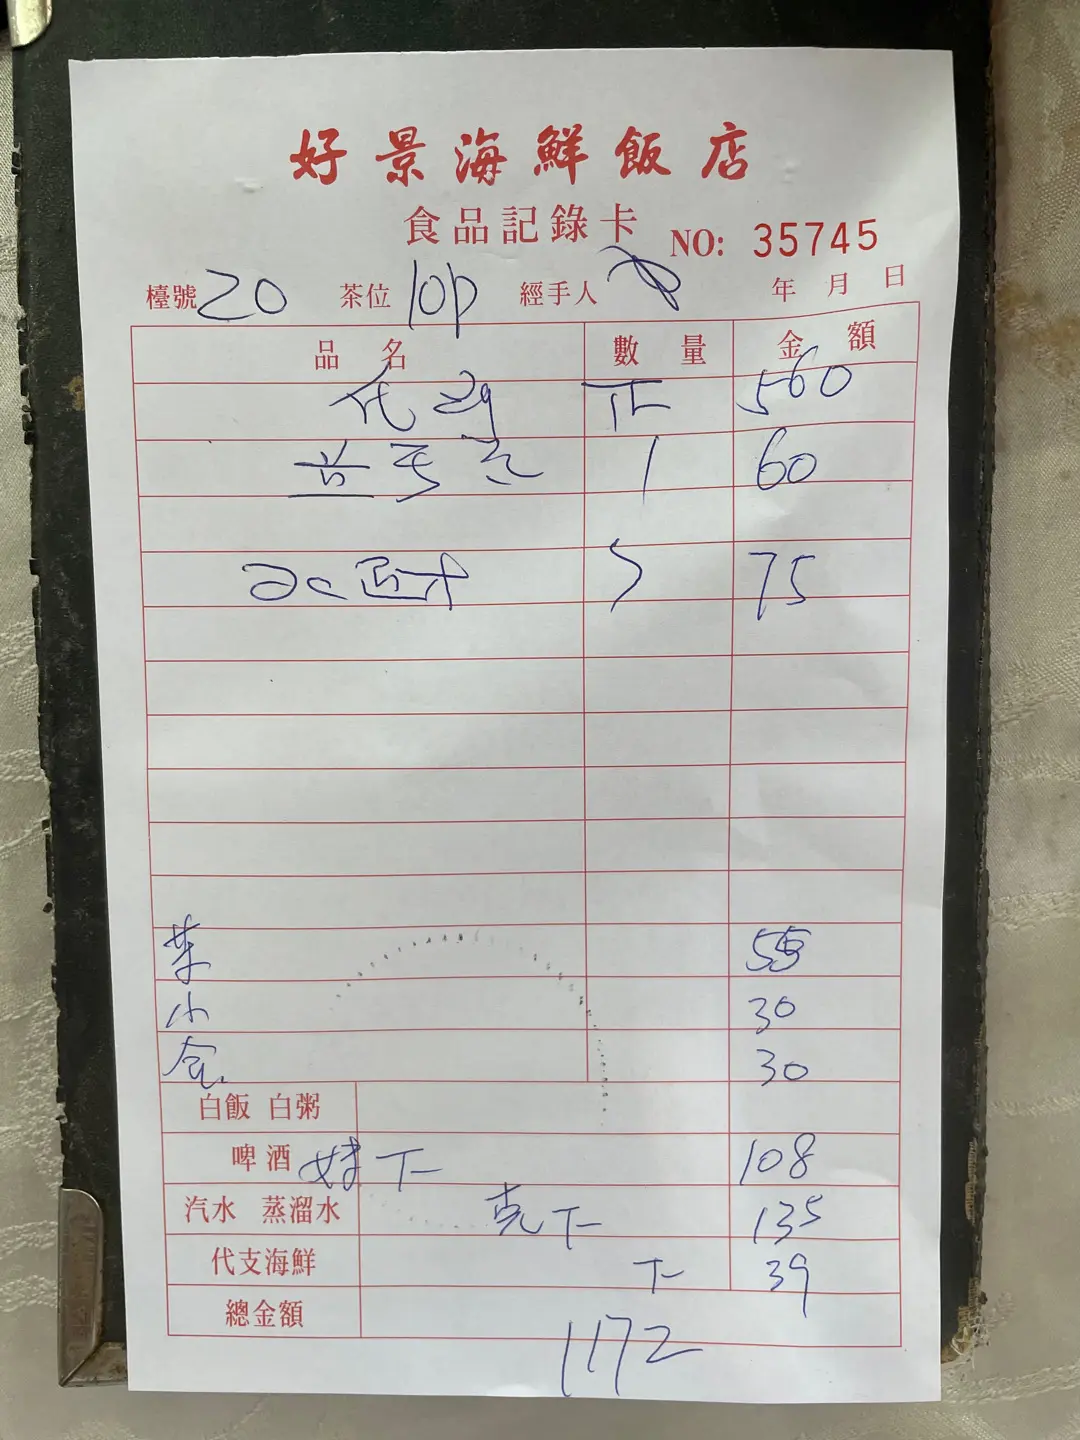 好景海鮮飯店
食品記錄卡
NO: 35745
檯號 20 茶位 10p 經手人 年 月 日
品 名 數 量 金 額
正 560
1 60
75
菜 55
小 30
30
白飯 白粥
啤酒 下 108
汽水 蒸溜水 下 135
代支海鮮 下 39
總金額 1172